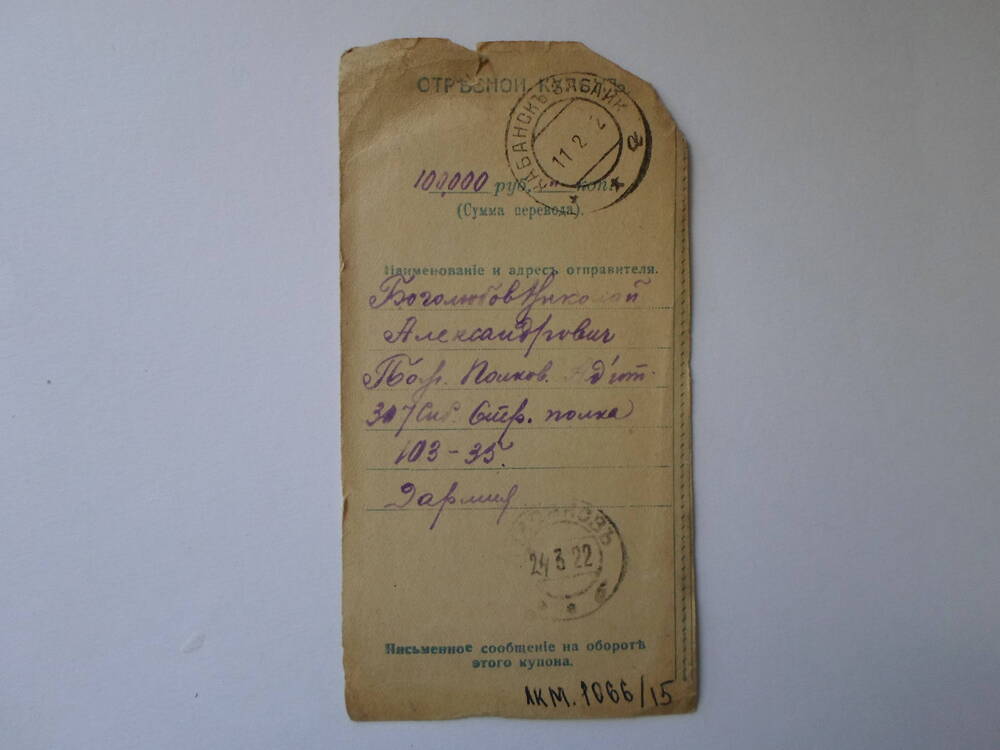 ОТРѢЗНОЙ КУПОНЪ.
КАБАНСКЪ ЗАБАЙК
11 2 2
100,000 руб. " коп.
(Сумма перевода).
Наименованіе и адресъ отправителя.
Боголюбов Николай
Александрович
Полков. Ад'ют.
307 Сиб. Стр. полка
103-35
Эармия
24 3 22
б
Письменное сообщеніе на оборотѣ
этого купона.
ЛКМ. 1066/15